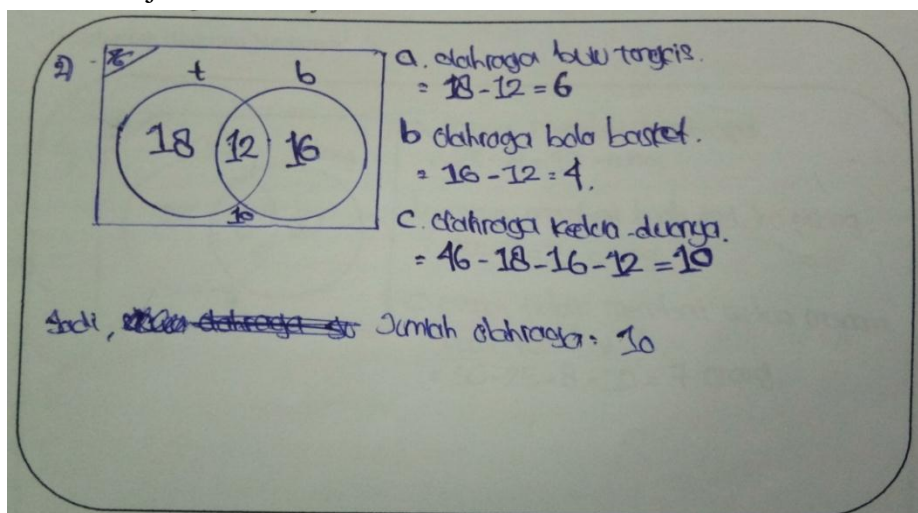 2)
t b
18 12 16
10
a. olahraga bulu tangkis.
= 18 - 12 = 6
b olahraga bola basket.
= 16 - 12 = 4.
c. olahraga kedua-duanya.
= 46 - 18 - 16 - 12 = 10
Jadi, Jumlah olahraga = 10